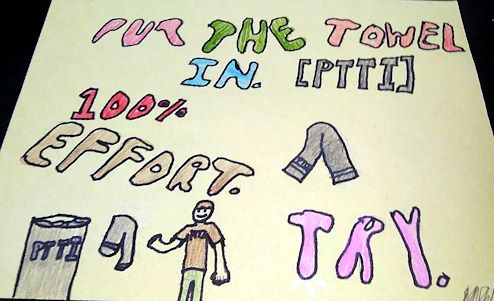 PUT THE TOWEL
IN. [PTTI]
100%
EFFORT.
TRY.
PTTI